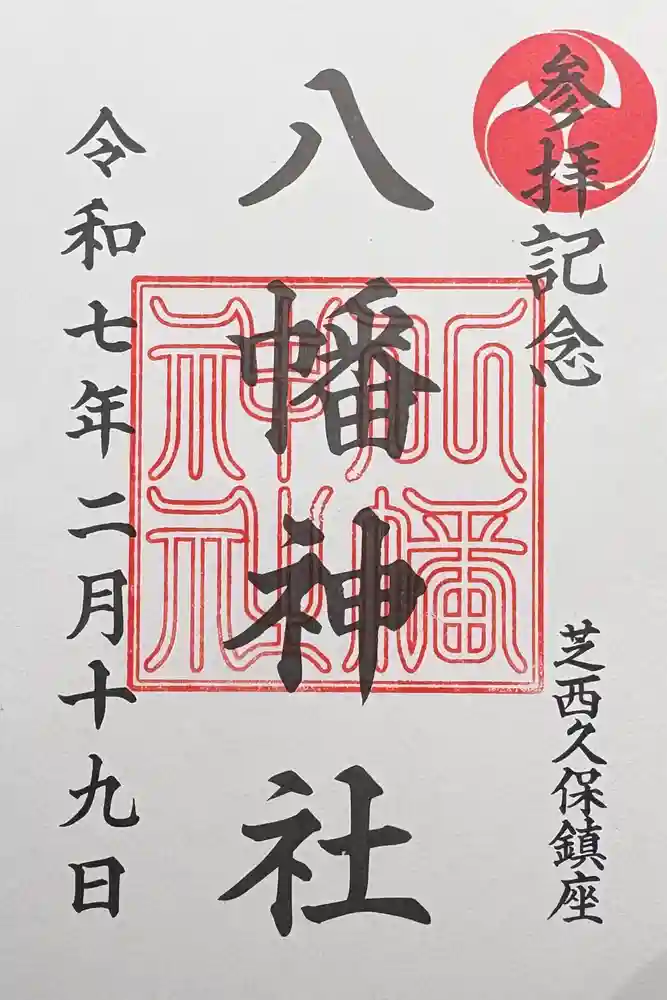 参拝記念
芝西久保鎮座
八幡神社
八幡神社
令和七年二月十九日